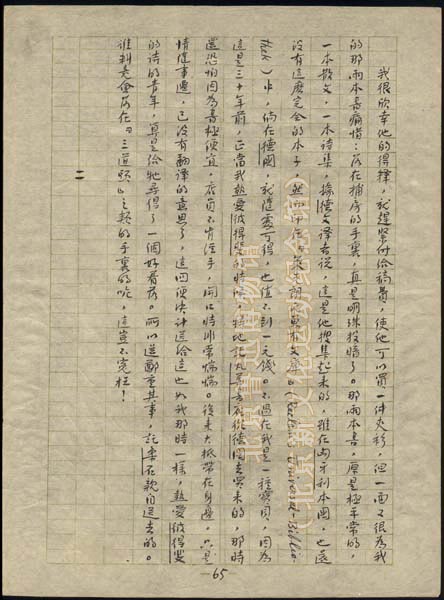 我很欣幸他的得釋，就趕緊付給稿費，使他可以買一件夾衫，但一面又很為我
的那兩本書痛惜：落在捕房的手裏，真是明珠投暗了。那兩本書，原是極平常的，
一本散文，一本詩集，據德文譯者說，這是他搜集起來的，雖在匈牙利本國，也還
沒有這麼完全的本子，然而印在《萊克朗氏萬有文庫》（Reclam's Universal-Biblio
thek）中，倘在德國，就隨處可得，也值不到一元錢。不過在我是一種寶貝，因為
這是三十年前，正當我熱愛彼得斐的時候，特地托丸善書店從德國去買來的，那時
還恐怕因為書極便宜，店員不肯經手，開口時非常惴惴。後來大抵帶在身邊，只是
情隨事遷，已沒有翻譯的意思了，這回便決計送給這也如我那時一樣，熱愛彼得斐
的詩的青年，算是給牠尋得了一個好着落。所以還鄭重其事，託柔石親自送去的。
誰料竟會落在『三道頭』之類的手裏的呢，這豈不冤枉！
二
65
北京鲁迅博物馆
（北京新文化运动纪念馆）